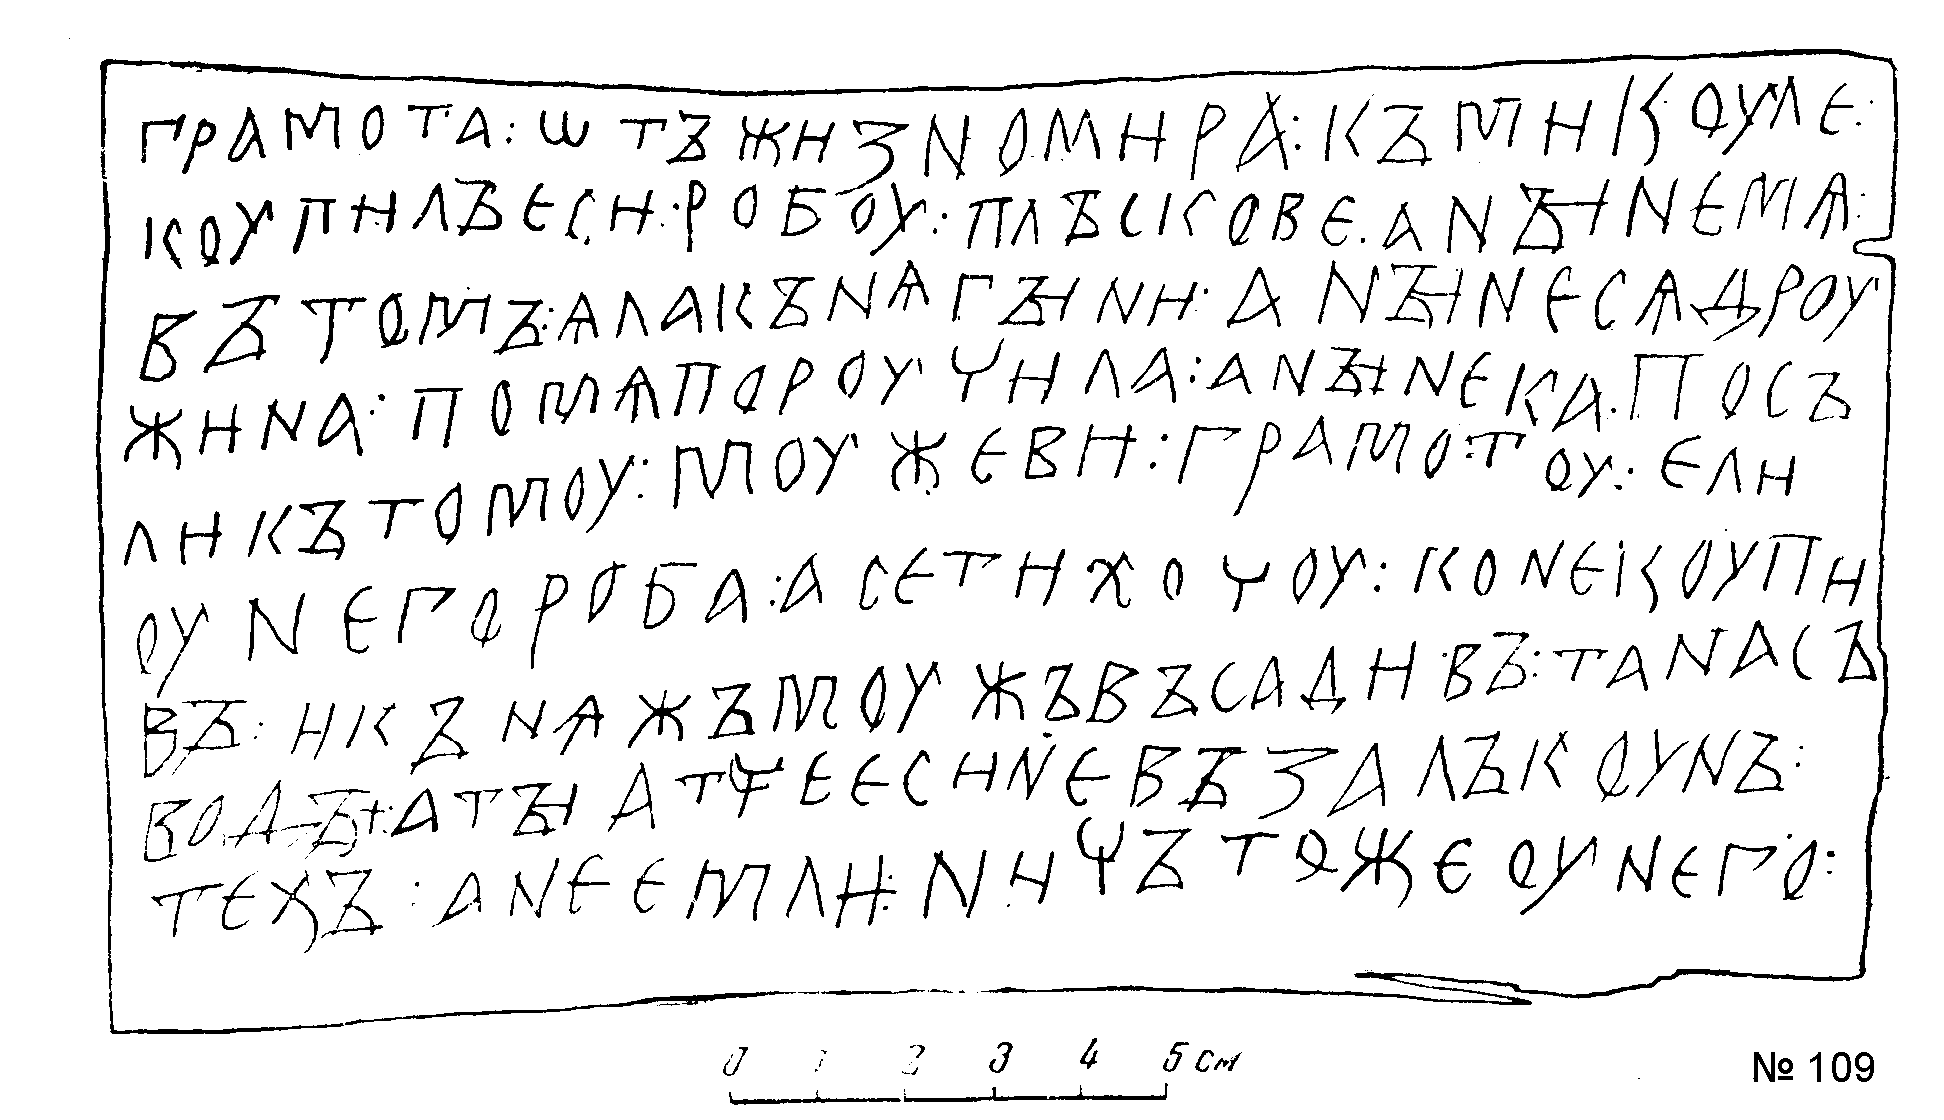 грамота : ѡтъ жизномира : къ микоуле :
коупилъ еси : робоу : плъскове . а нꙑне мѧ :
въ томъ : ѧла кънѧгꙑни : а нꙑне сѧ дроу
жина : по мѧ пороуцила : а нꙑне ка . посъ
ли къ томоу : моужеви : грамотоу : ели
оу него роба : а се ти хоцоу : коне коупи
въ : и кънѧжъ моужъ въсадивъ : та на съ
водꙑ : а тꙑ атче еси не възалъ коунъ :
техъ : а не емли : ничъто же оу него :
0 1 2 3 4 5 см
№ 109